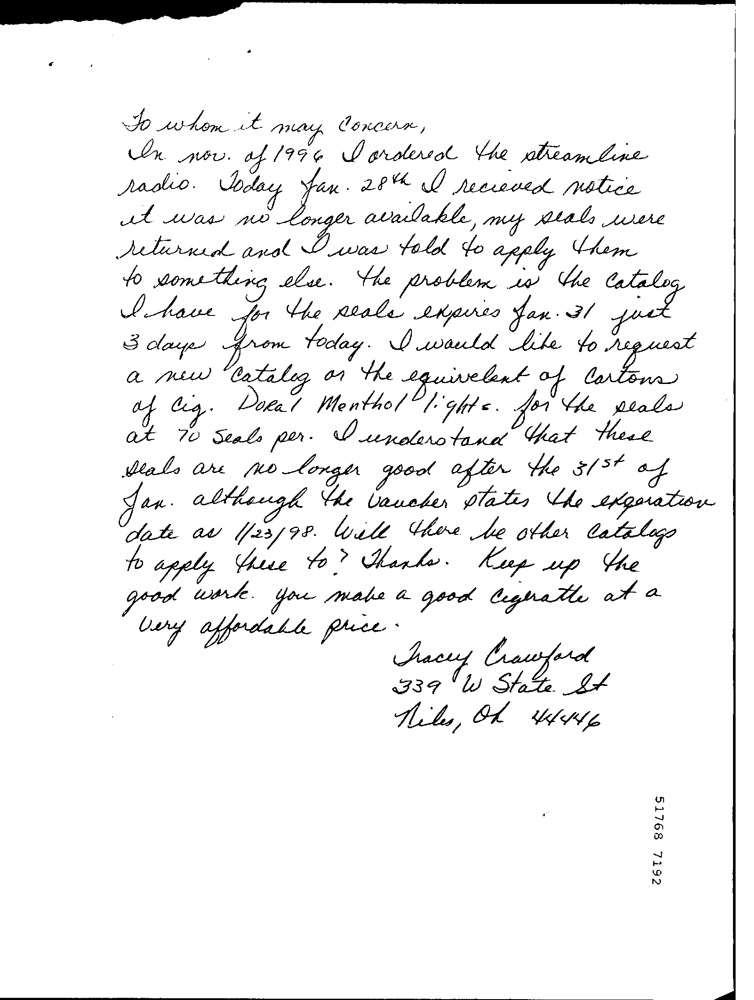 To whom it may concern,
In nov. of 1996 I ordered the streamline
radio. Today Jan. 28th I recieved notice
it was no longer available, my seals were
returned and I was told to apply them
to something else. the problem is the catalog
I have for the seals expires Jan. 31 just
3 days from today. I would like to request
a new catalog or the equivelent of Cartons
of Cig. Doral Menthol lights. for the seals
at 70 Seals per. I understand that these
seals are no longer good after the 31st of
Jan. although the vaucher states the experation
date as 1/23/98. Will there be other catalogs
to apply these to? Thanks. Keep up the
good work. you make a good cigeratte at a
very affordable price.
Tracey Crawford
339 W State St
Niles, Oh 44446
51768 7192